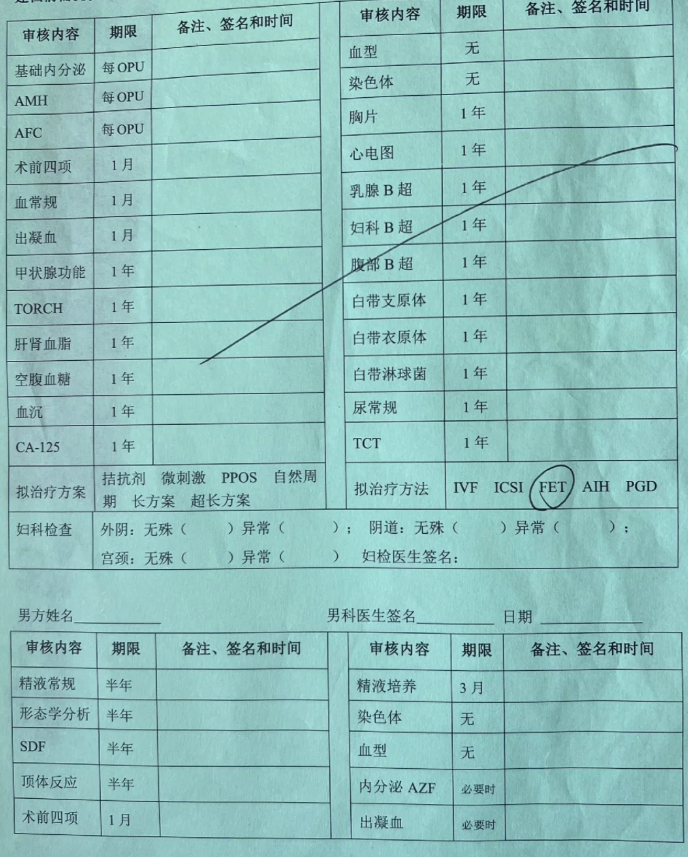 审核内容 期限 备注、签名和时间 审核内容 期限 备注、签名和时间
基础内分泌 每 OPU 血型 无
AMH 每 OPU 染色体 无
AFC 每 OPU 胸片 1 年
术前四项 1 月 心电图 1 年
血常规 1 月 乳腺 B 超 1 年
出凝血 1 月 妇科 B 超 1 年
甲状腺功能 1 年 腹部 B 超 1 年
TORCH 1 年 白带支原体 1 年
肝肾血脂 1 年 白带衣原体 1 年
空腹血糖 1 年 白带淋球菌 1 年
血沉 1 年 尿常规 1 年
CA-125 1 年 TCT 1 年
拟治疗方案 拮抗剂 微刺激 PPOS 自然周 拟治疗方法 IVF ICSI FET AIH PGD
期 长方案 超长方案
妇科检查 外阴：无殊（ ）异常（ ）； 阴道：无殊（ ）异常（ ）；
宫颈：无殊（ ）异常（ ） 妇检医生签名：
男方姓名__________ 男科医生签名__________ 日期 __________
审核内容 期限 备注、签名和时间 审核内容 期限 备注、签名和时间
精液常规 半年 精液培养 3 月
形态学分析 半年 染色体 无
SDF 半年 血型 无
顶体反应 半年 内分泌 AZF 必要时
术前四项 1 月 出凝血 必要时